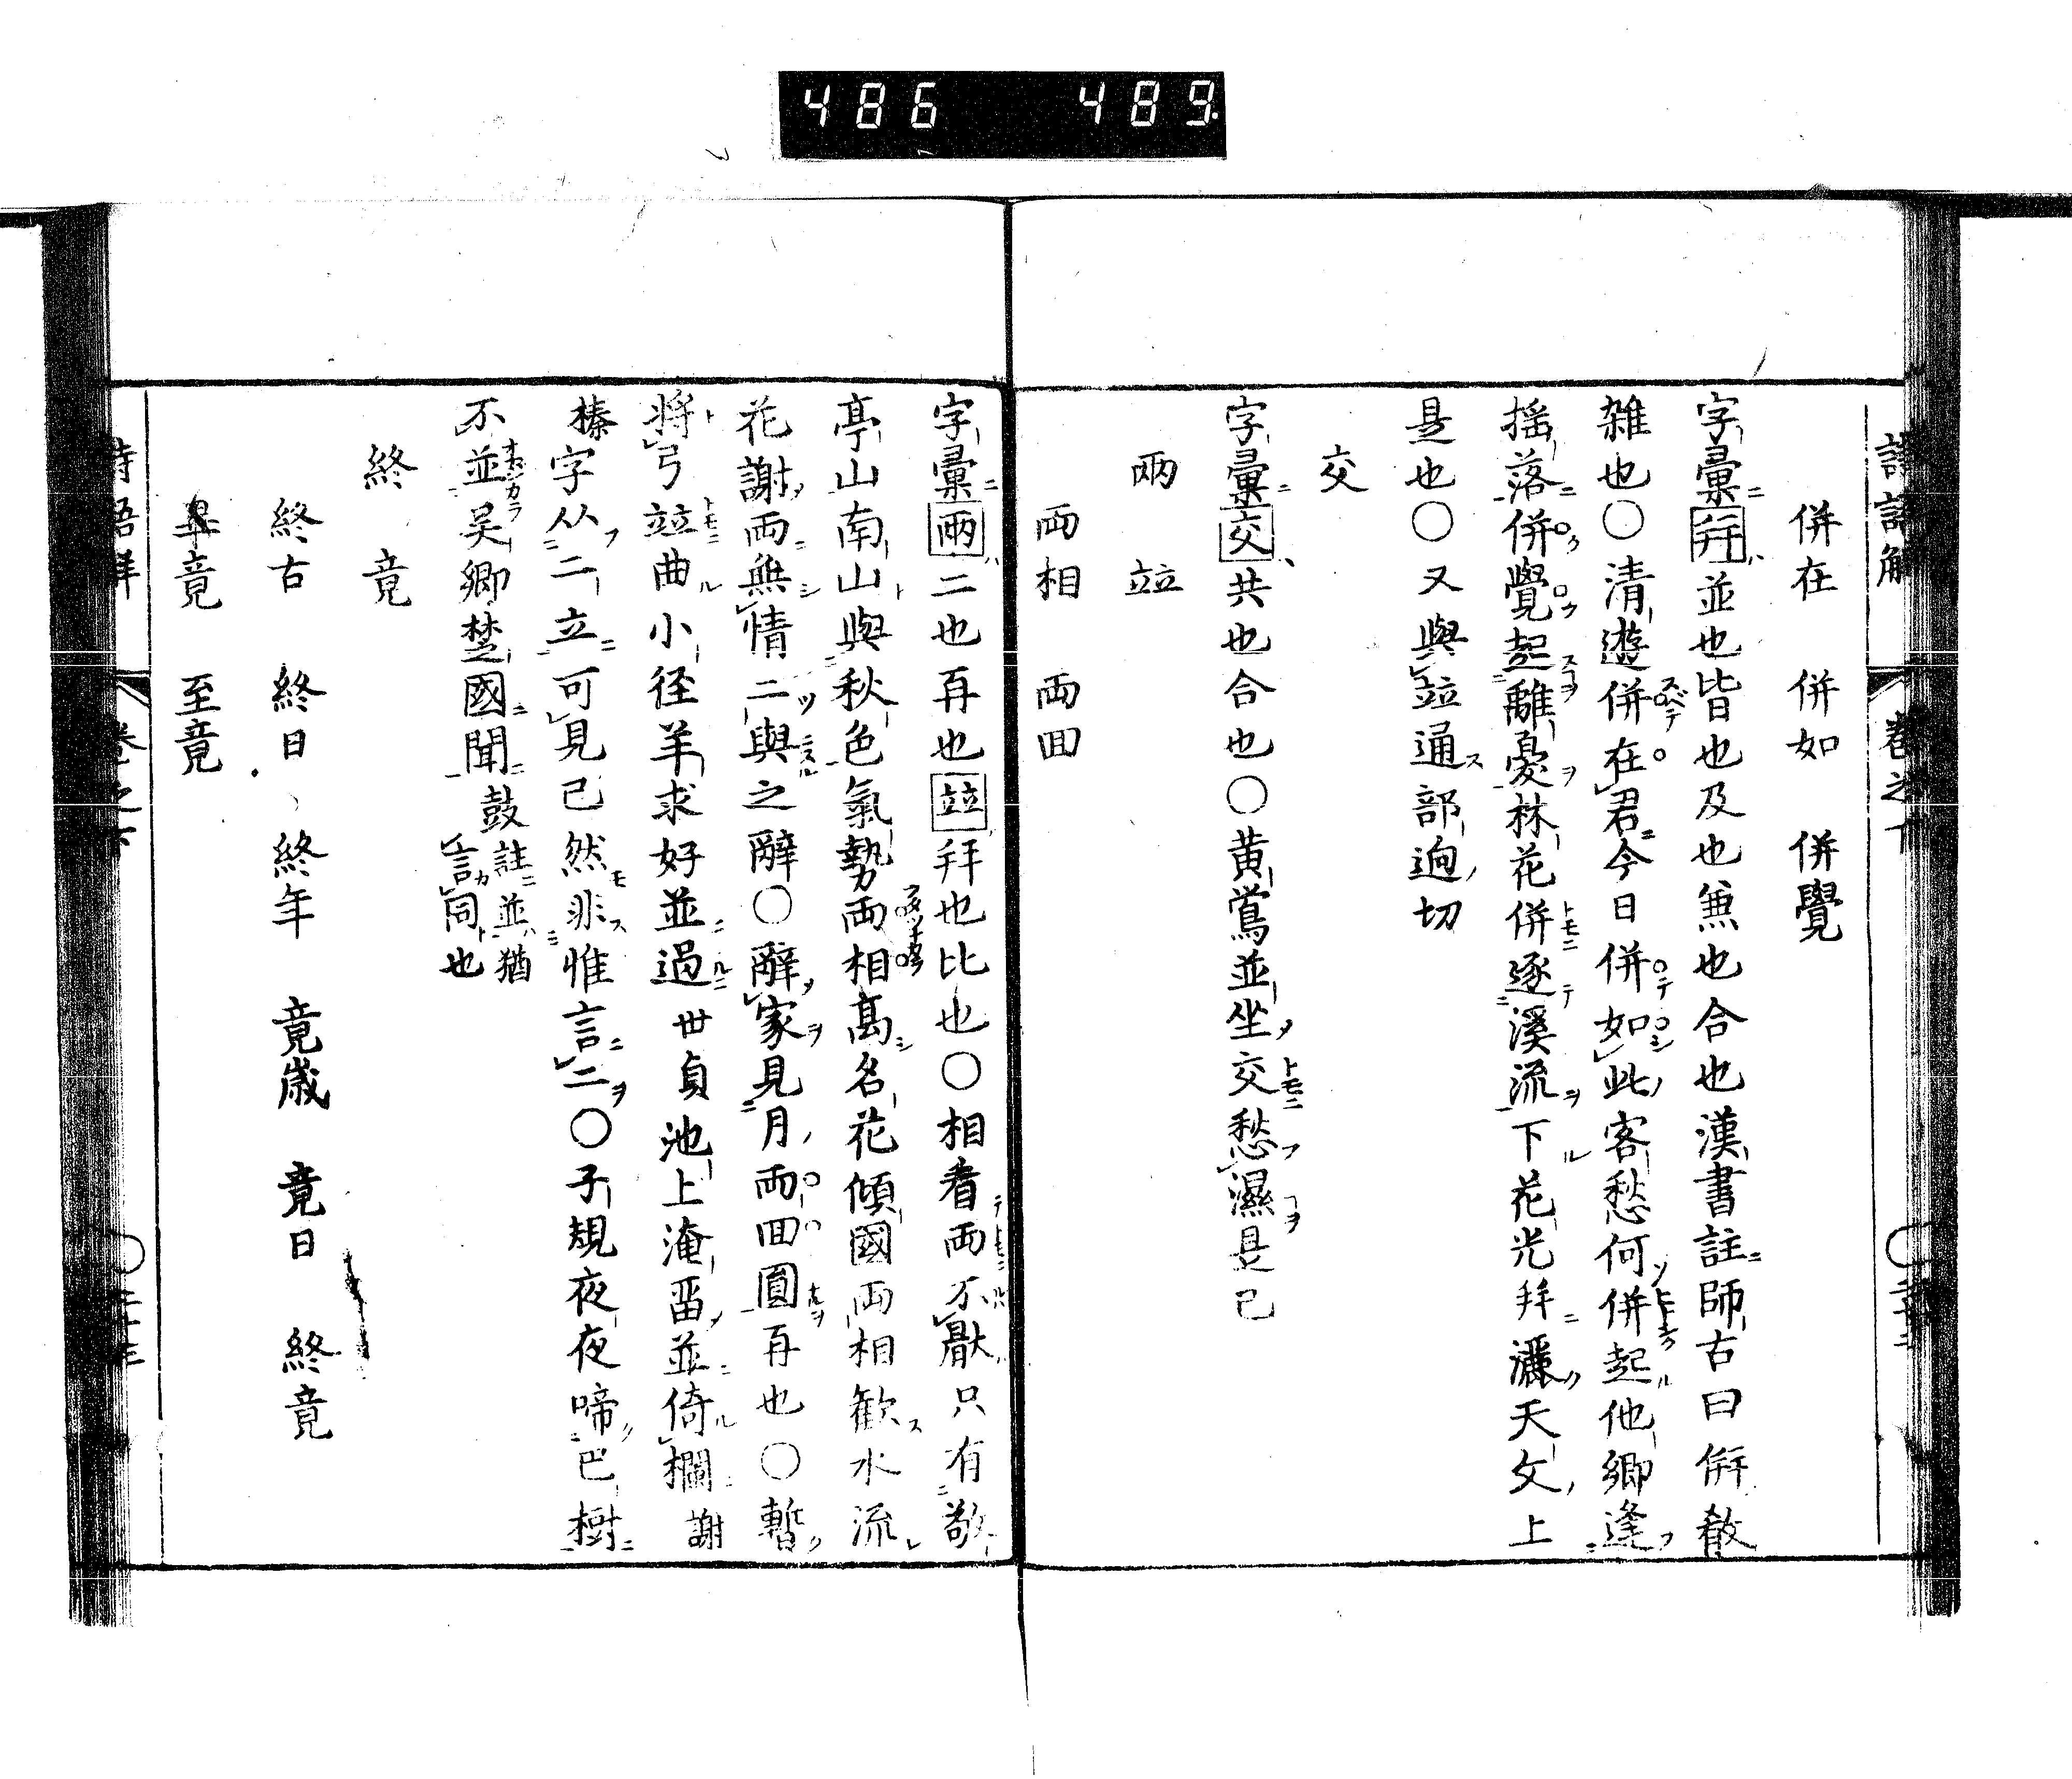 486 489
併在 併如 併覺
字彙ニ拼ハ並也皆也及也兼也合也漢書註ニ師古曰併散
雑也〇清遊併在君今日併如此客愁何併起他郷逢
揺落併覺起離憂林花併逐溪流下花光拝灑天文上
是也〇又與竝通部迥切
交
字彙ニ交ハ共也合也〇黄鶯並坐交愁濕是已
兩 竝
両相 両回
字彙ニ兩ハ二也再也竝拝也比也〇相看両不厭只有敬
亭山南山與秋色氣勢両相高名花傾國両相歓水流
花謝両無情二與之辭〇辭家見月両回圓再也〇暫
将弓竝曲小径羊求好並過 世貞池上淹留並倚欄 謝
榛字从二立可見已然非惟言二〇子規夜夜啼巴樹
不並吴郷楚國聞 鼓註並猶言同也
終 竟
終古 終日 終年 竟歳 竟日 終竟
畢竟 至竟
巻之下